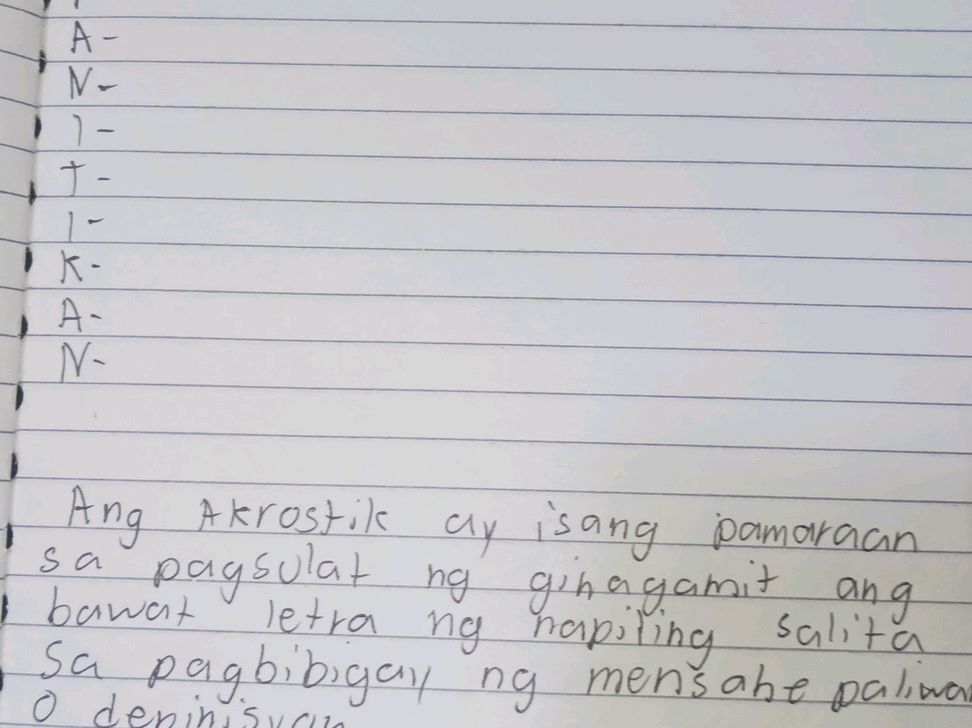 A-
N-
I-
T-
I-
K-
A-
N-
Ang Akrostik ay isang pamaraan
sa pagsulat ng ginagamit ang
bawat letra ng napiling salita
Sa pagbibigay ng mensahe paliwa
O depinisyon